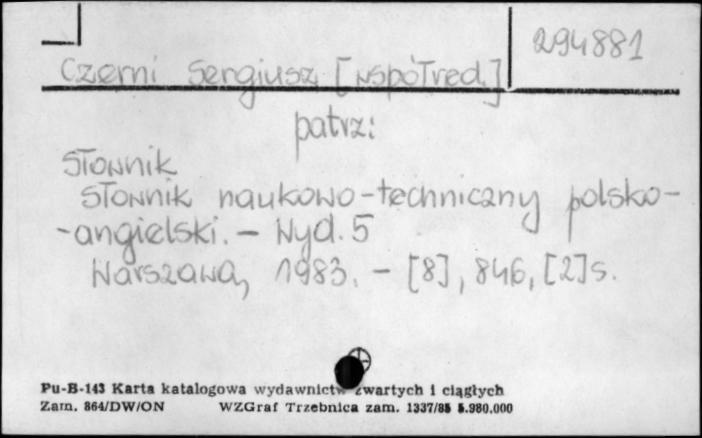 294881
Czerni Sergiusz [współred.]
patrz:
Słownik
Słownik naukowo-techniczny polsko-
-angielski. - Wyd. 5
Warszawa, 1983. - [8], 846, [2]s.
Pu-B-143 Karta katalogowa wydawnictw zwartych i ciągłych
Zam. 864/DW/ON WZGraf Trzebnica zam. 1337/85 5.980.000